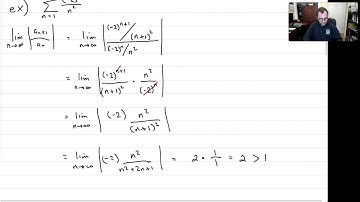 ex) ∑ n=1 (-2)ⁿ/n²
lim n→∞ |aₙ₊₁/aₙ| = lim n→∞ |(-2)ⁿ⁺¹/(n+1)² / (-2)ⁿ/n²|
= lim n→∞ |(-2)ⁿ⁺¹/(n+1)² · n²/(-2)ⁿ|
= lim n→∞ |(-2) n²/(n+1)²|
= lim n→∞ |(-2) n²/(n²+2n+1)| = 2 · 1/1 = 2 > 1